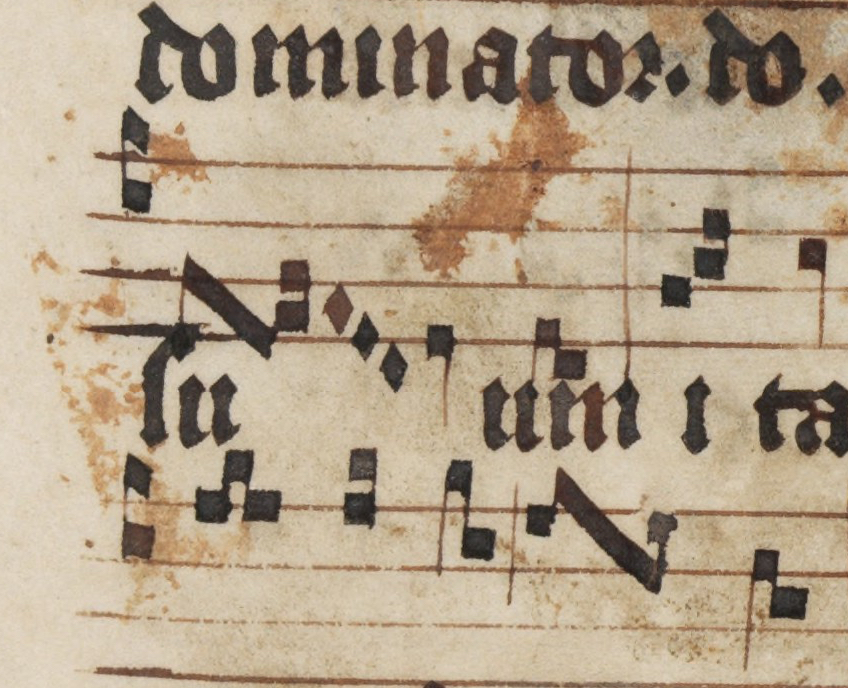 dominator. do.
lu um i ta